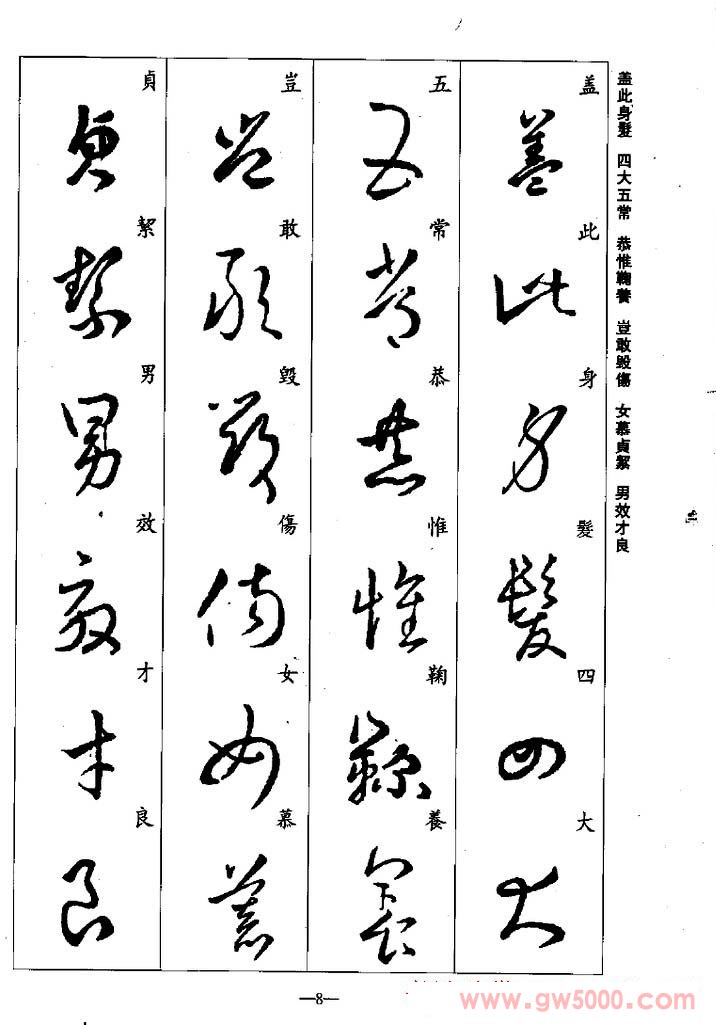 盖此身髮　四大五常　恭惟鞠養　豈敢毀傷　女慕貞絜　男效才良
盖此身髮四大
五常恭惟鞠養
豈敢毀傷女慕
貞絜男效才良
—8—
www.gw5000.com